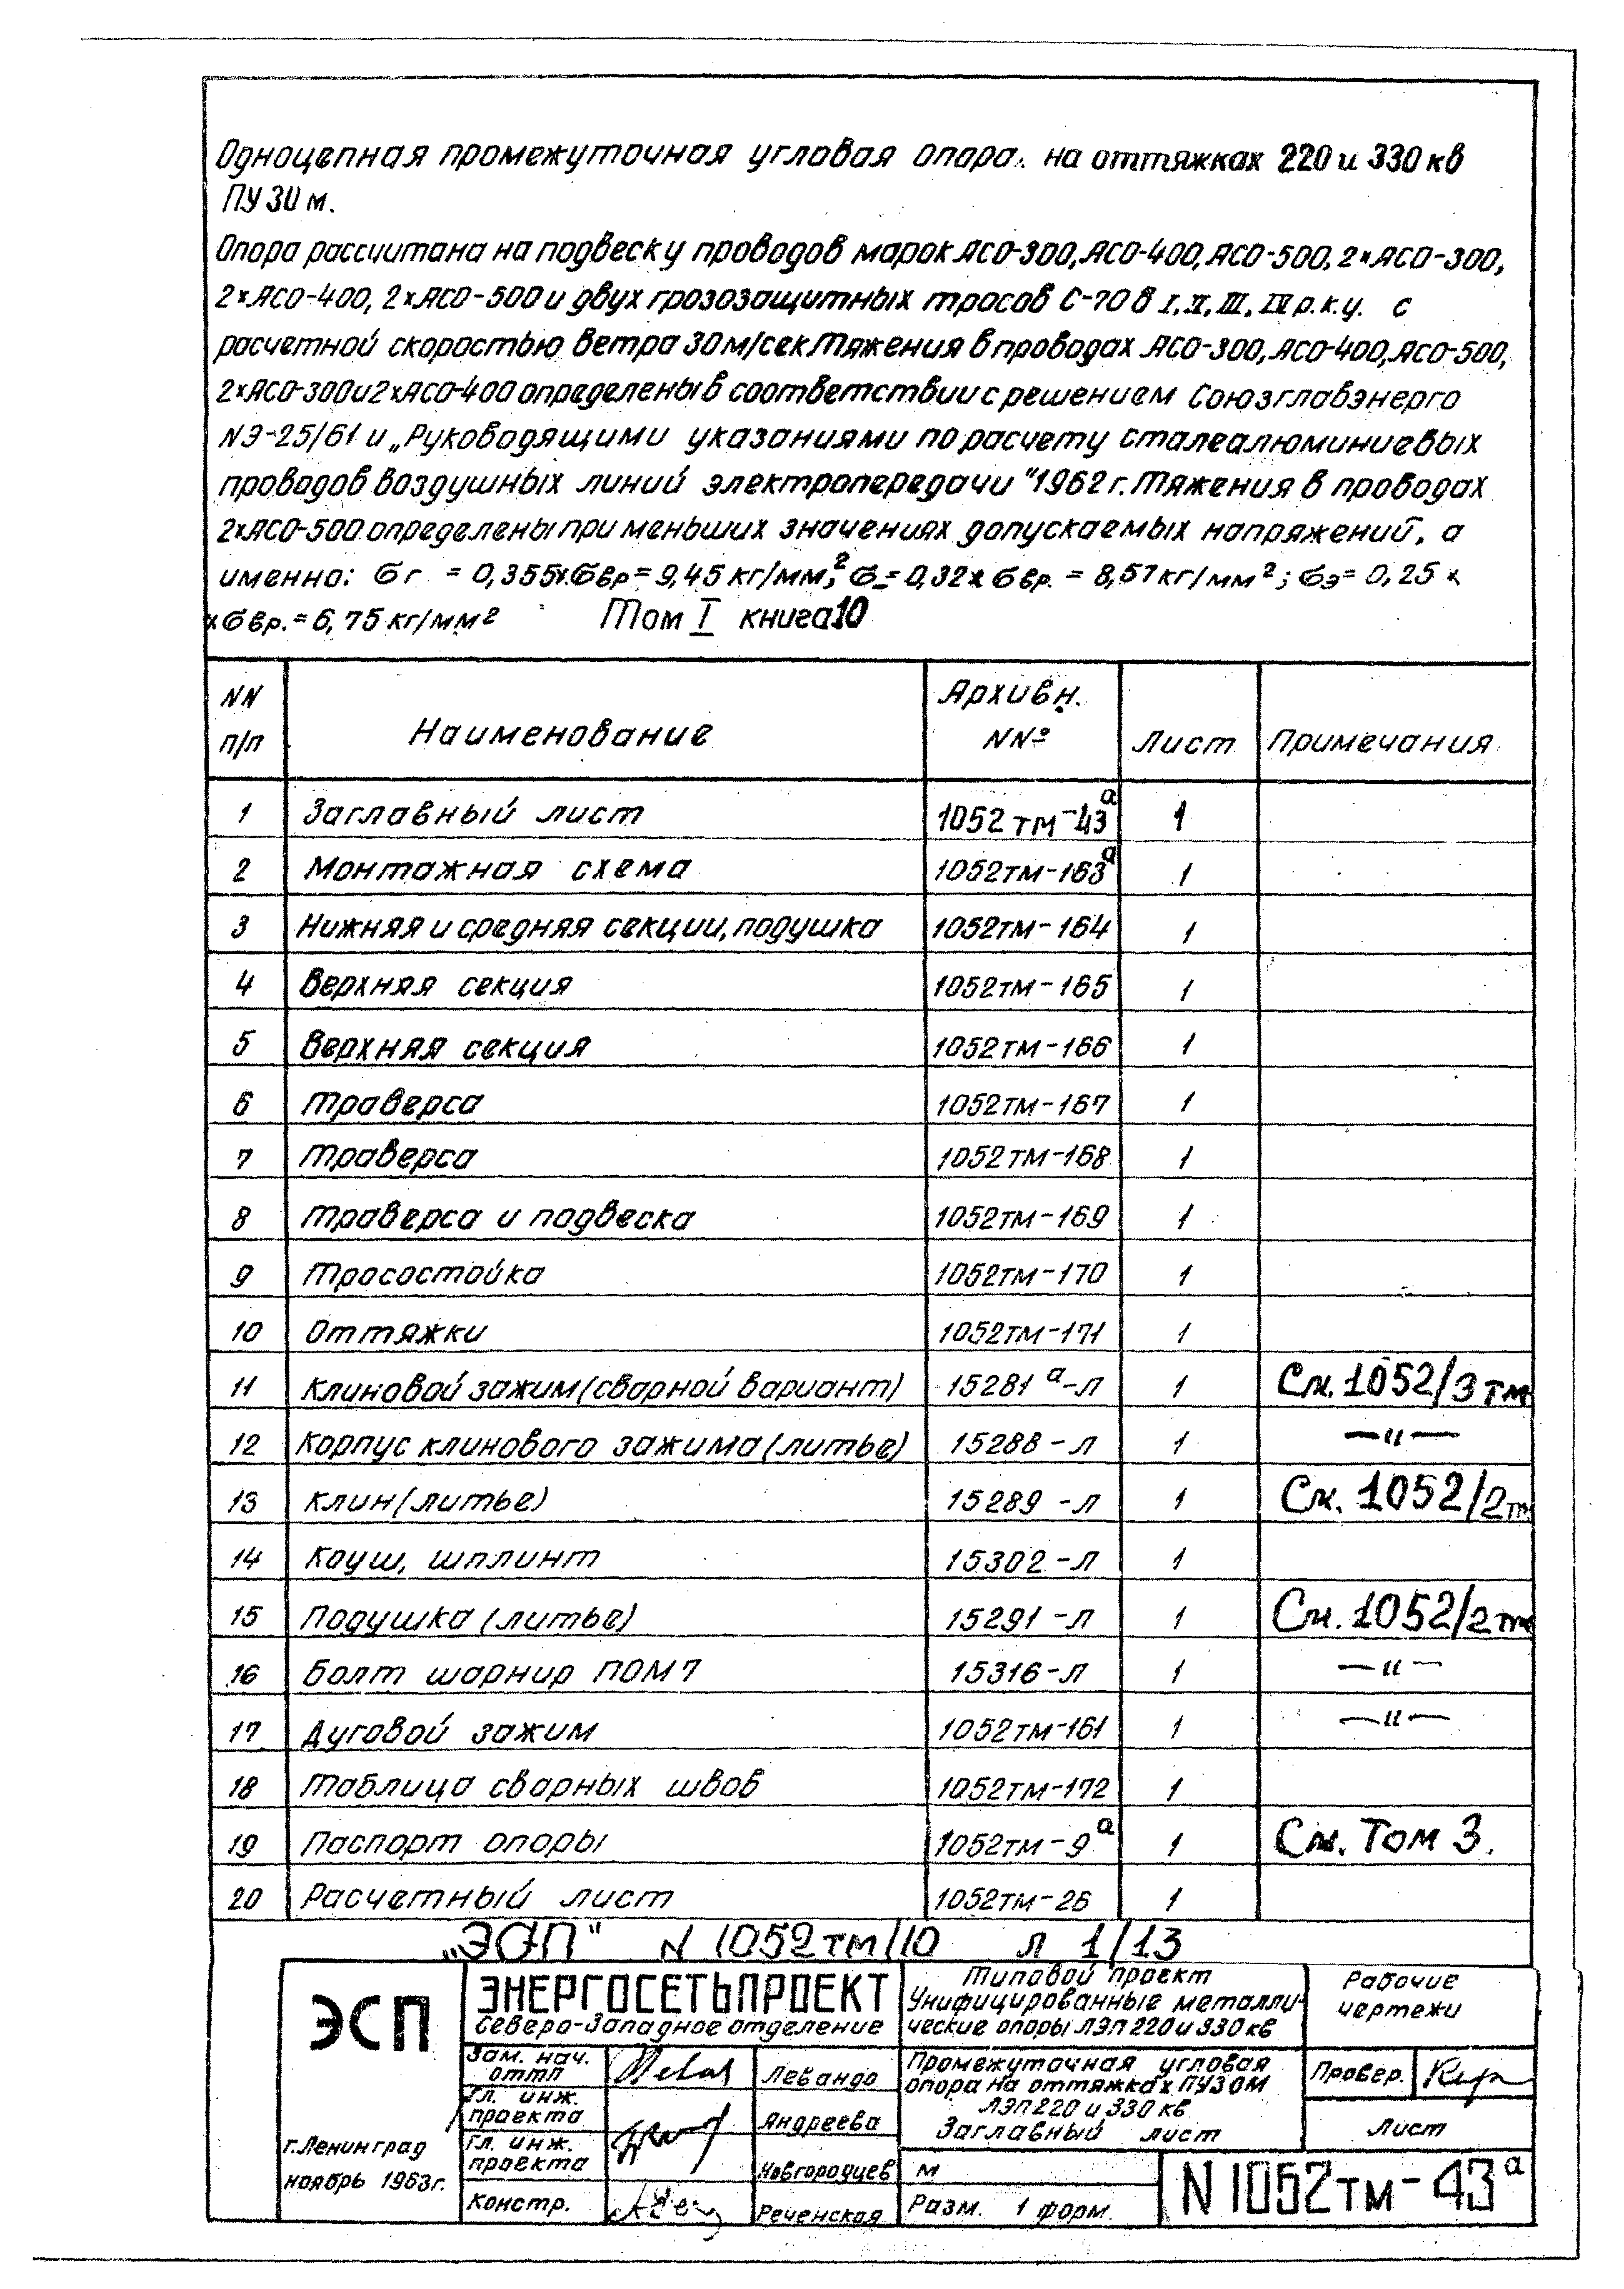 Одноцепная промежуточная угловая опора на оттяжках 220 и 330 кв
ПУ 30 м.
Опора рассчитана на подвеску проводов марок АСО-300, АСО-400, АСО-500, 2×АСО-300,
2×АСО-400, 2×АСО-500 и двух грозозащитных тросов С-70 в I, II, III, IV р.к.у. с
расчетной скоростью ветра 30 м/сек Тяжения в проводах АСО-300, АСО-400, АСО-500,
2×АСО-300 и 2×АСО-400 определены в соответствии с решением Союзглавэнерго
NЭ-25/61 и „Руководящими указаниями по расчету сталеалюминиевых
проводов воздушных линий электропередачи" 1962 г. Тяжения в проводах
2×АСО-500 определены при меньших значениях допускаемых напряжений, а
именно: бг = 0,355×бвр = 9,45 кг/мм²; б_ = 0,32×бвр. = 8,57 кг/мм²; бэ = 0,25 ×
×бвр. = 6,75 кг/мм² Том I книга 10
NN п/п Наименование Архивн. NNº Лист Примечания
1 Заглавный лист 1052тм-43а 1
2 Монтажная схема 1052тм-163а 1
3 Нижняя и средняя секции, подушка 1052тм-164 1
4 Верхняя секция 1052тм-165 1
5 Верхняя секция 1052тм-166 1
6 Траверса 1052тм-167 1
7 Траверса 1052тм-168 1
8 Траверса и подвеска 1052тм-169 1
9 Тросостойка 1052тм-170 1
10 Оттяжки 1052тм-171 1
11 Клиновой зажим (сварной вариант) 15281а-л 1 См. 1052/3тм
12 Корпус клинового зажима (литье) 15288-л 1 —"—
13 Клин (литье) 15289-л 1 См. 1052/2тм
14 Коуш, шплинт 15302-л 1
15 Подушка (литье) 15291-л 1 См. 1052/2тм
16 Болт шарнир ПОМ7 15316-л 1 —"—
17 Дуговой зажим 1052тм-161 1 —"—
18 Таблица сварных швов 1052тм-172 1
19 Паспорт опоры 1052тм-9а 1 См. Том 3.
20 Расчетный лист 1052тм-26 1
„ЭСП" N 1052тм/10 л 1/13
ЭСП
г. Ленинград
ноябрь 1963г.
ЭНЕРГОСЕТЬПРОЕКТ
Северо-Западное отделение
Зам. нач. оттп Левандо
Гл. инж. проекта Андреева
Гл. инж. проекта Новгородцев
Констр. Реченская
Типовой проект
Унифицированные металли-
ческие опоры ЛЭП 220 и 330 кв
Промежуточная угловая
опора на оттяжках ПУ30М
ЛЭП 220 и 330 кв
Заглавный лист
М
Разм. 1 форм.
Рабочие
чертежи
Провер.
Лист
N 1052тм-43а